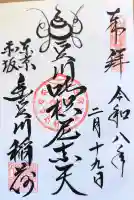 奉拝
令和八年
二月十九日
豊川吒枳尼真天
東京
赤坂
豊川稲荷